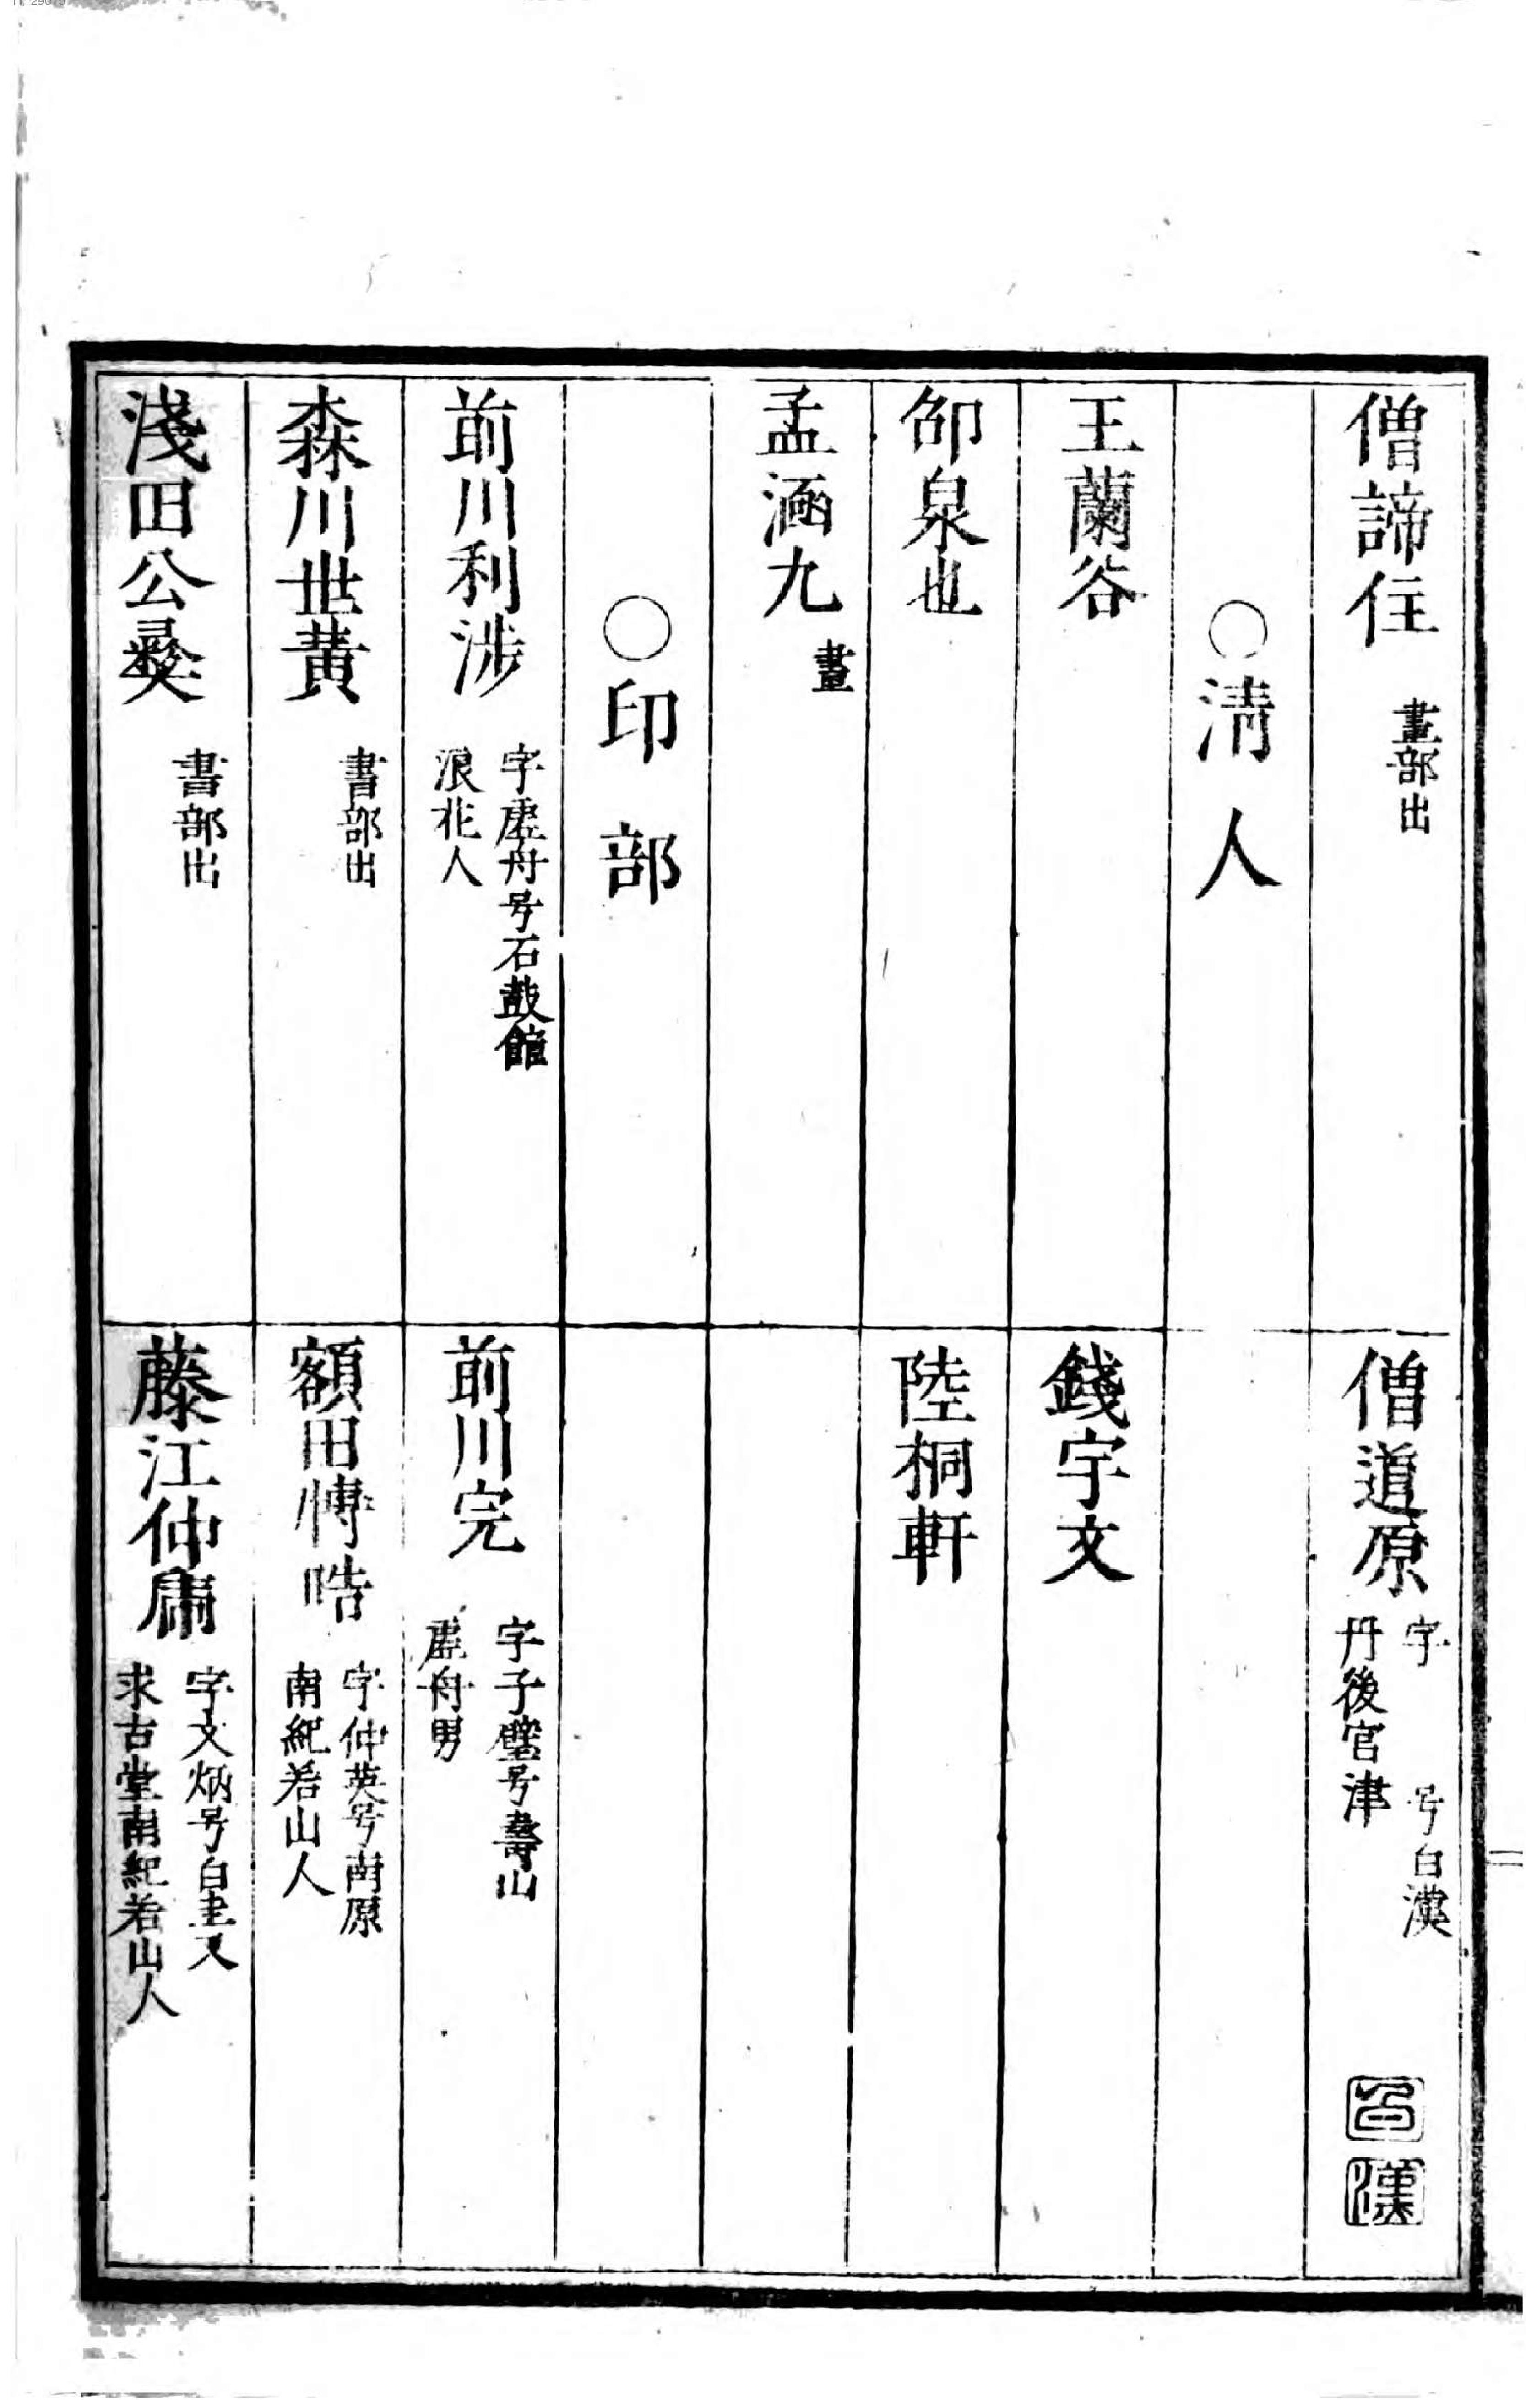 僧諦住 畫部出
僧道原 字 号白漢
丹後宮津
白
漢
○清人
王蘭谷
錢宇文
邵泉也
陸桐軒
孟涵九 畫
○印部
前川利渉 字虚舟号石鼓館
浪花人
前川完 字子璧号壽山
虚舟男
森川世黄 書部出
額田慱晧 字仲英号南原
南紀若山人
淺田公彜 書部出
藤江仲庸 字文炳号白圭又
求古堂南紀若山人
二